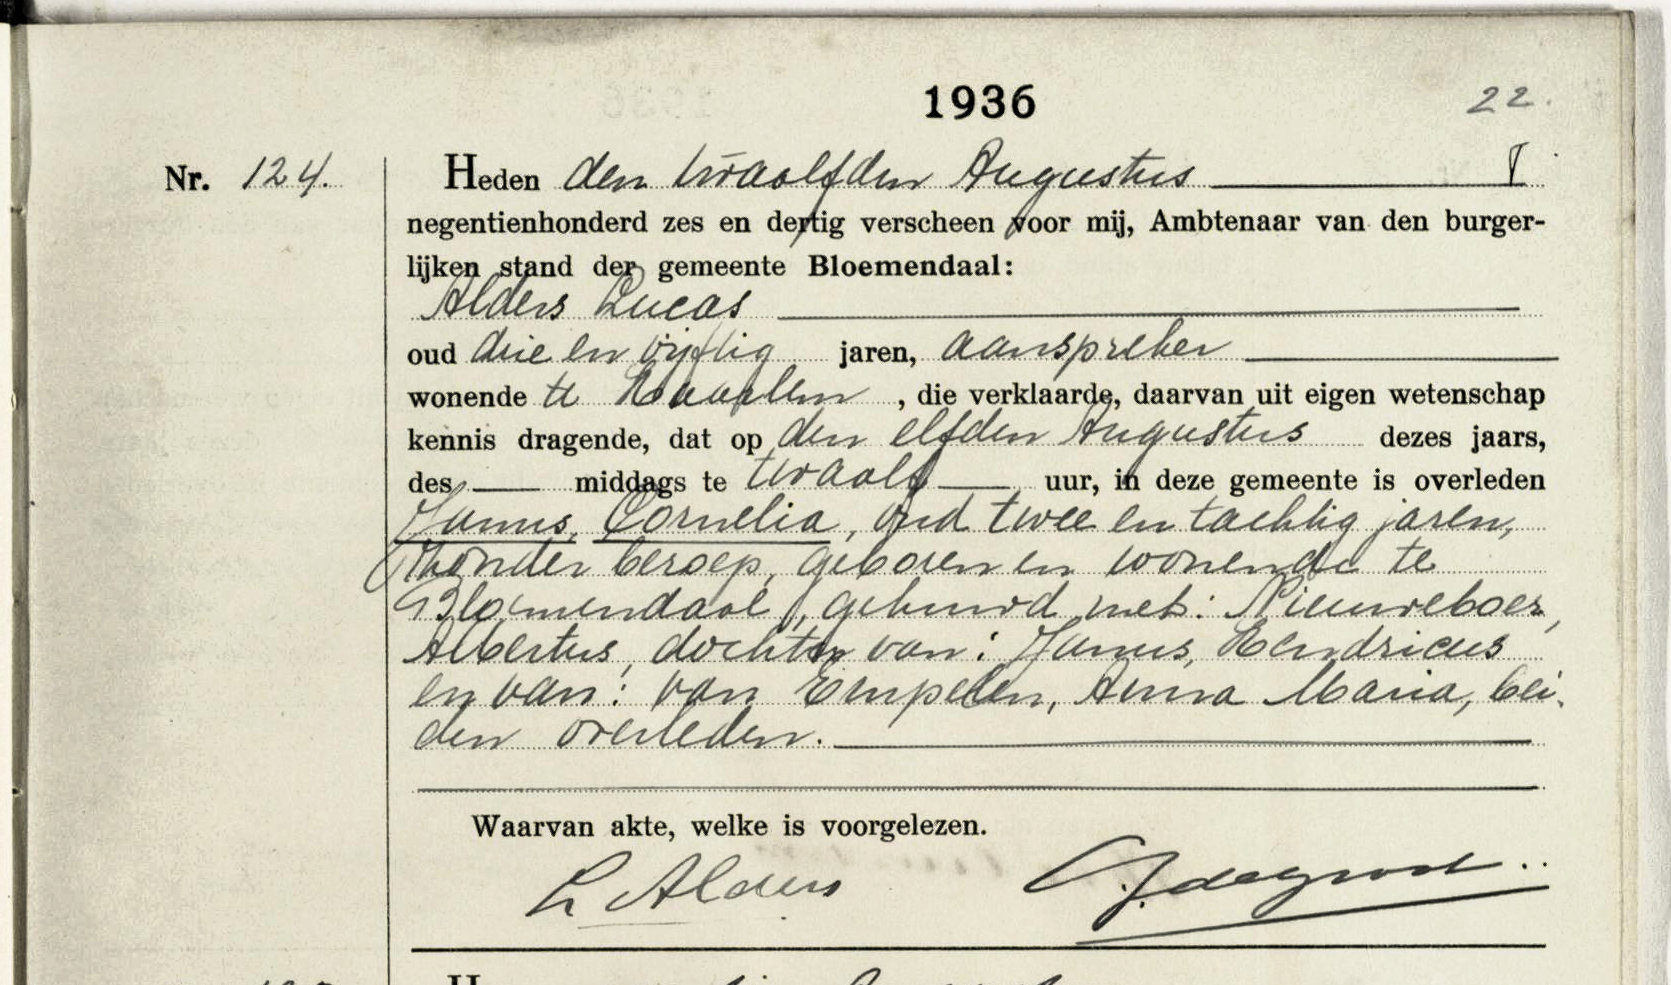 1936
22.
Nr. 124. Heden den twaalfden Augustus
negentienhonderd zes en dertig verscheen voor mij, Ambtenaar van den burger-
lijken stand der gemeente Bloemendaal:
Alders Lucas
oud drie en vijftig jaren, aanspreker
wonende te Haarlem, die verklaarde, daarvan uit eigen wetenschap
kennis dragende, dat op den elfden Augustus dezes jaars,
des — middags te twaalf — uur, in deze gemeente is overleden
Cornelia, oud twee en tachtig jaren,
zonder beroep, geboren en wonende te
Bloemendaal, gehuwd met: Nieuweboer,
Albertus, dochter van: Hendricus
en van: van Empelen, Anna Maria, bei-
den overleden.
Waarvan akte, welke is voorgelezen.
L Alders